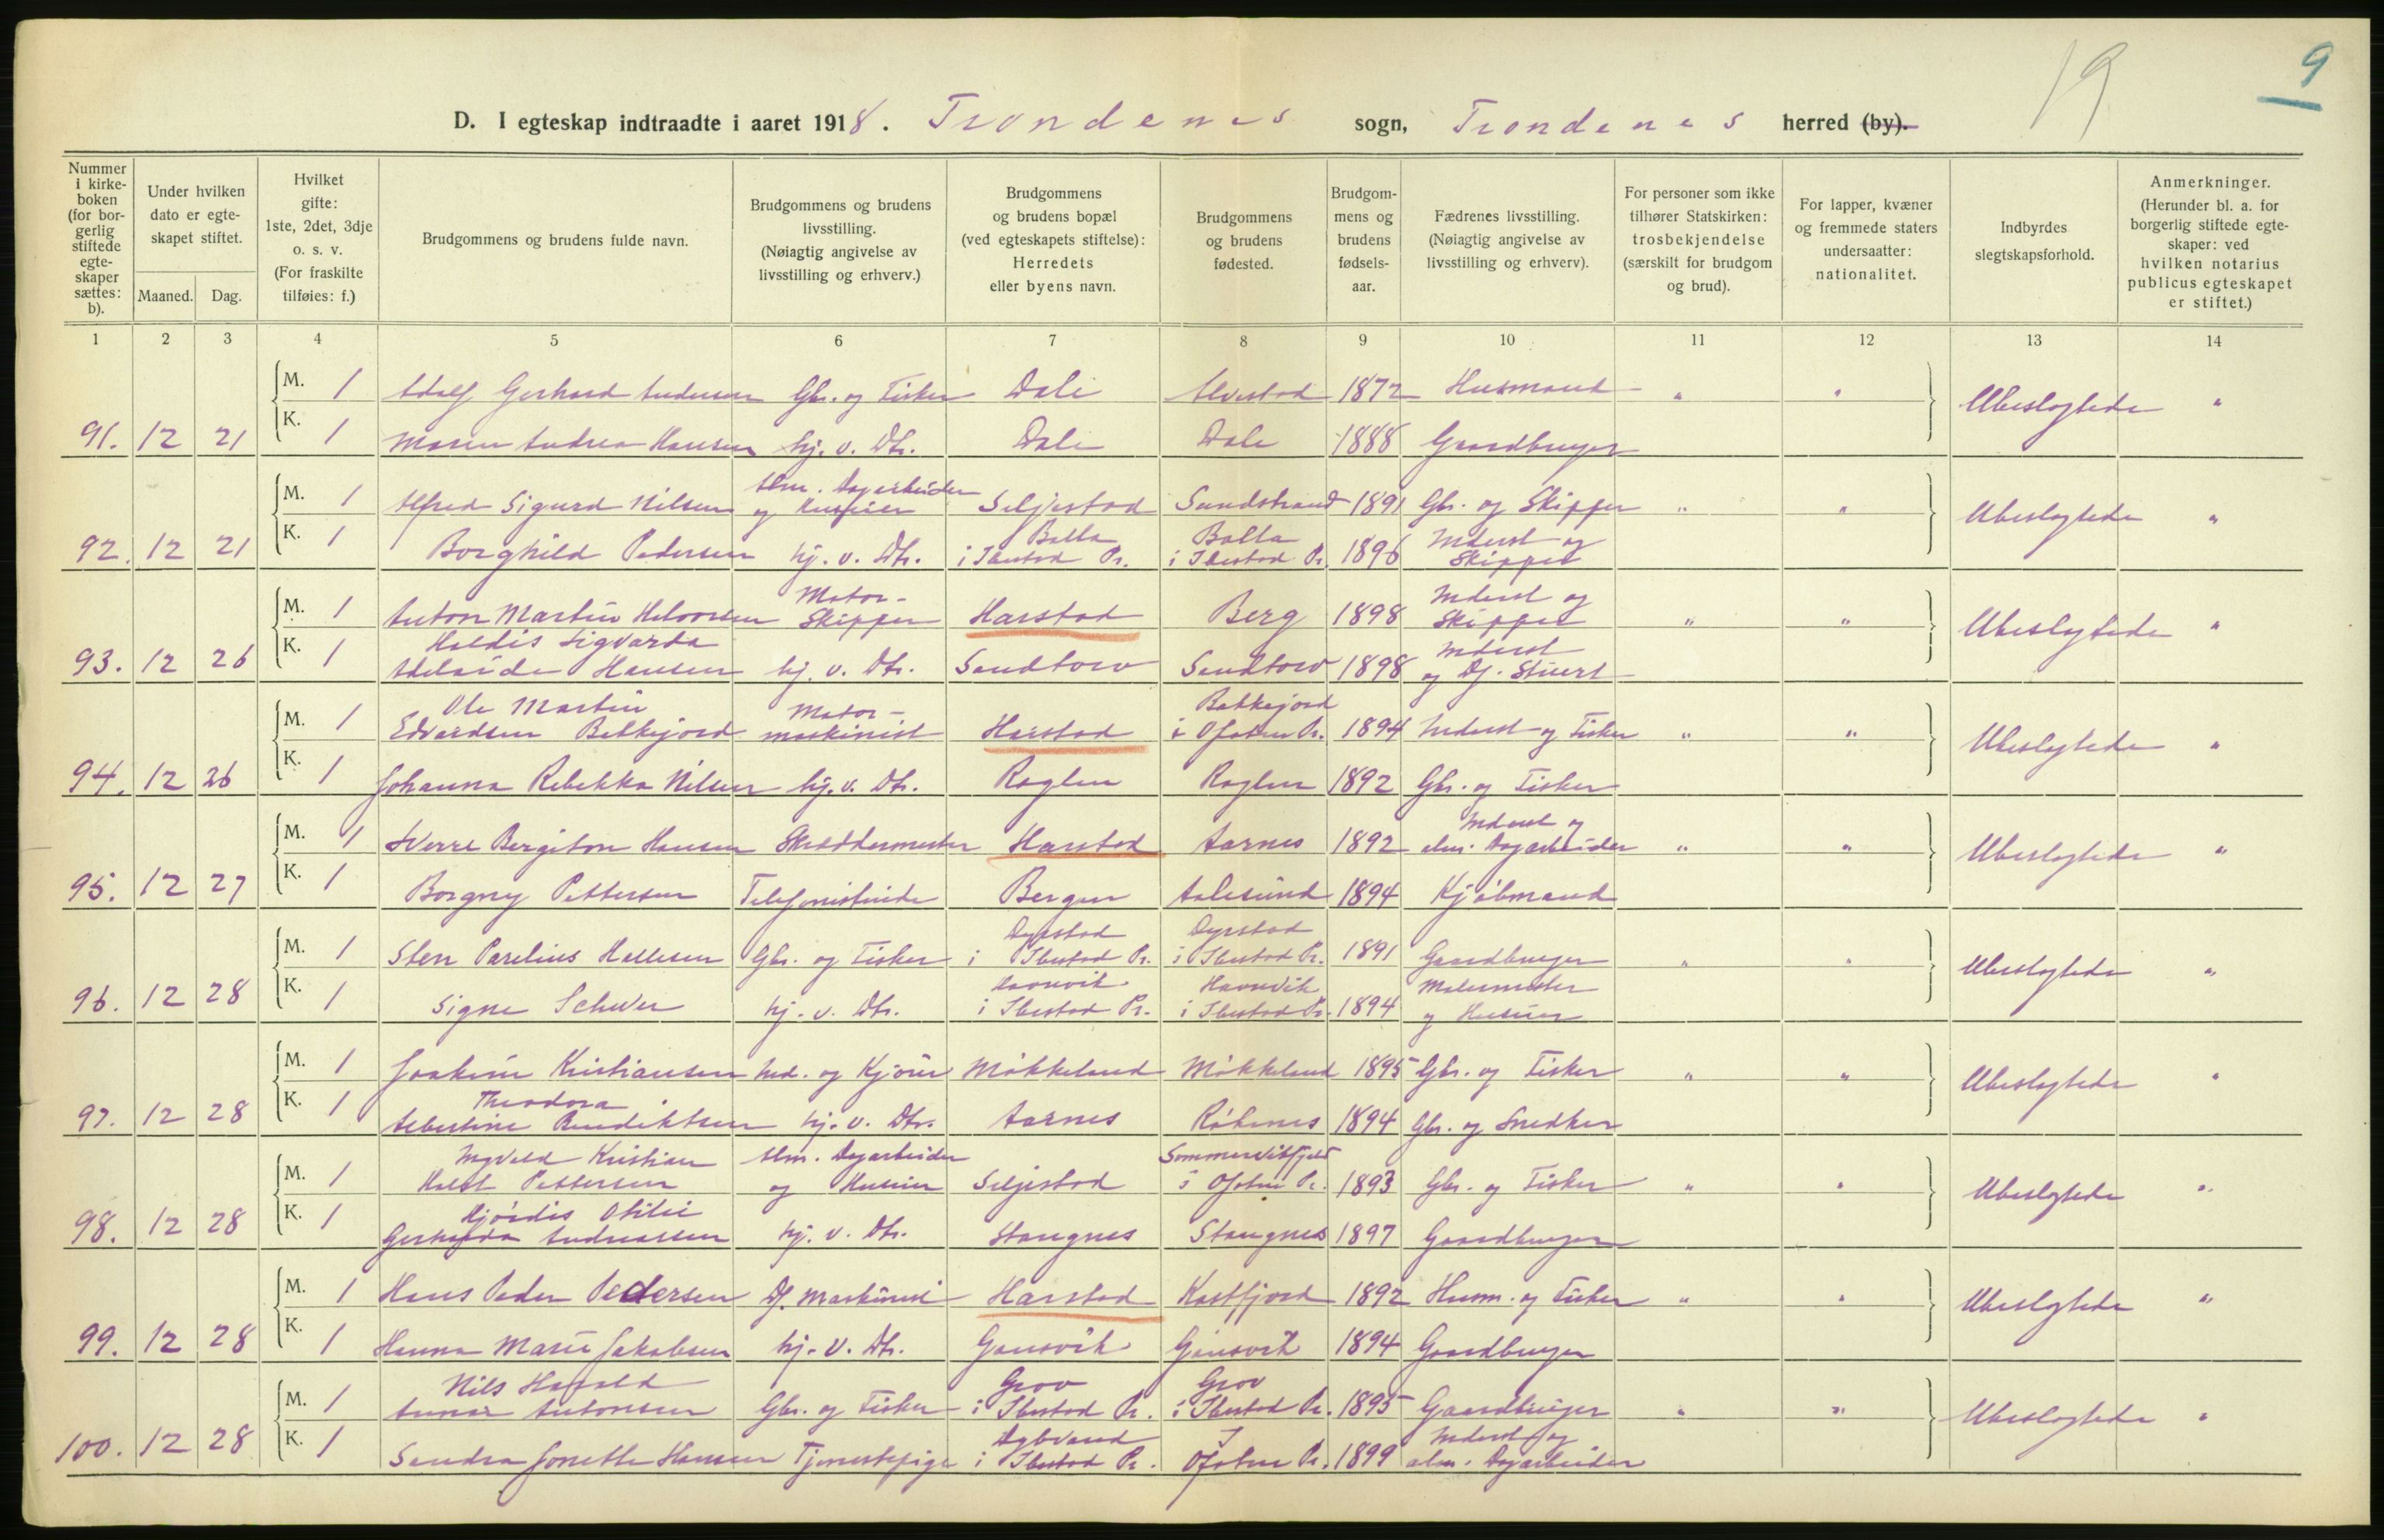 19
9
D. I egteskap indtraadte i aaret 1918. Trondenes sogn, Trondenes herred (by).
Nummer i kirkeboken (for borgerlig stiftede egteskaper sættes: b).
Under hvilken dato er egteskapet stiftet.
Maaned. Dag.
Hvilket gifte: 1ste, 2det, 3dje o. s. v. (For fraskilte tilføies: f.)
Brudgommens og brudens fulde navn.
Brudgommens og brudens livsstilling. (Nøiagtig angivelse av livsstilling og erhverv.)
Brudgommens og brudens bopæl (ved egteskapets stiftelse): Herredets eller byens navn.
Brudgommens og brudens fødested.
Brudgommens og brudens fødselsaar.
Fædrenes livsstilling. (Nøiagtig angivelse av livsstilling og erhverv).
For personer som ikke tilhører Statskirken: trosbekjendelse (særskilt for brudgom og brud).
For lapper, kvæner og fremmede staters undersaatter: nationalitet.
Indbyrdes slegtskapsforhold.
Anmerkninger. (Herunder bl. a. for borgerlig stiftede egteskaper: ved hvilken notarius publicus egteskapet er stiftet.)
1 2 3 4 5 6 7 8 9 10 11 12 13 14
M. 1 Adolf Gerhard Andersen Gbr. og Fisker Dale Alvestad 1872 Husmand " " Ubeslegtede "
91. 12 21 K. 1 Maren Andrea Hansen hj. v. Dtr. Dale Dale 1888 Gaardbruger
M. 1 Alfred Sigurd Nilsen alm. Dagarbeider og Huseier Seljestad Sandstrand 1891 Gbr. og Skipper " " Ubeslegtede "
92. 12 21 K. 1 Borghild Pedersen hj. v. Dtr. Balla i Ibestad Pr. Balla i Ibestad Pr. 1896 Inderst og Skipper
M. 1 Anton Martin Halvorsen Motor-Skipper Harstad Berg 1898 Inderst og Skipper " " Ubeslegtede "
93. 12 26 K. 1 Haldis Sigvarda Adelaide Hansen hj. v. Dtr. Sandtorv Sandtorv 1898 Inderst og Df. Stuert
M. 1 Ole Martin Edvardsen Balkejord Motor-maskinist Harstad Balkejord i Ofoten Pr. 1894 Inderst og Fisker " " Ubeslegtede "
94. 12 26 K. 1 Johanna Rebekka Nilsen hj. v. Dtr. Roglen Roglen 1892 Gbr. og Fisker
M. 1 Sverre Bergiton Hansen Skræddermester Harstad Aarnes 1892 Inderst og alm. Dagarbeider " " Ubeslegtede "
95. 12 27 K. 1 Borgny Pettersen Telefonistinde Bergen Aalesund 1894 Kjøbmand
M. 1 Sten Parelius Hallesen Gbr. og Fisker Dyrstad i Ibestad Pr. Dyrstad i Ibestad Pr. 1891 Gaardbruger " " Ubeslegtede "
96. 12 28 K. 1 Signe Schwer hj. v. Dtr. Havnvik i Ibestad Pr. Havnvik i Ibestad Pr. 1894 Malermester og Huseier
M. 1 Joakim Kristiansen Ind. og Kjører Møkkeland Møkkeland 1895 Gbr. og Fisker " " Ubeslegtede "
97. 12 28 K. 1 Theodora Albertine Benediktsen hj. v. Dtr. Aarnes Røkenes 1894 Gbr. og Snedker
M. 1 Ingvald Kristian Holst Pettersen alm. Dagarbeider og Huseier Seljestad i Ofoten Pr. 1893 Gbr. og Fisker " " Ubeslegtede "
98. 12 28 K. 1 Hjørdis Otilie Gerharda Andreassen hj. v. Dtr. Stangnes Stangnes 1897 Gaardbruger
M. 1 Hans Peder Pedersen Df. Maskinist Harstad Kastfjord 1892 Husm. og Fisker " " Ubeslegtede "
99. 12 28 K. 1 Hanna Marie Jakobsen hj. v. Dtr. Gausvik Gausvik 1894 Gaardbruger
M. 1 Nils Harald Antonsen Gbr. og Fisker Grov i Ibestad Pr. Grov i Ibestad Pr. 1895 Gaardbruger " " Ubeslegtede "
100. 12 28 K. 1 Sandra Jonette Hansen Tjenestepige i Ibestad Pr. I Ofoten Pr. 1899 Inderst og alm. Dagarbeider